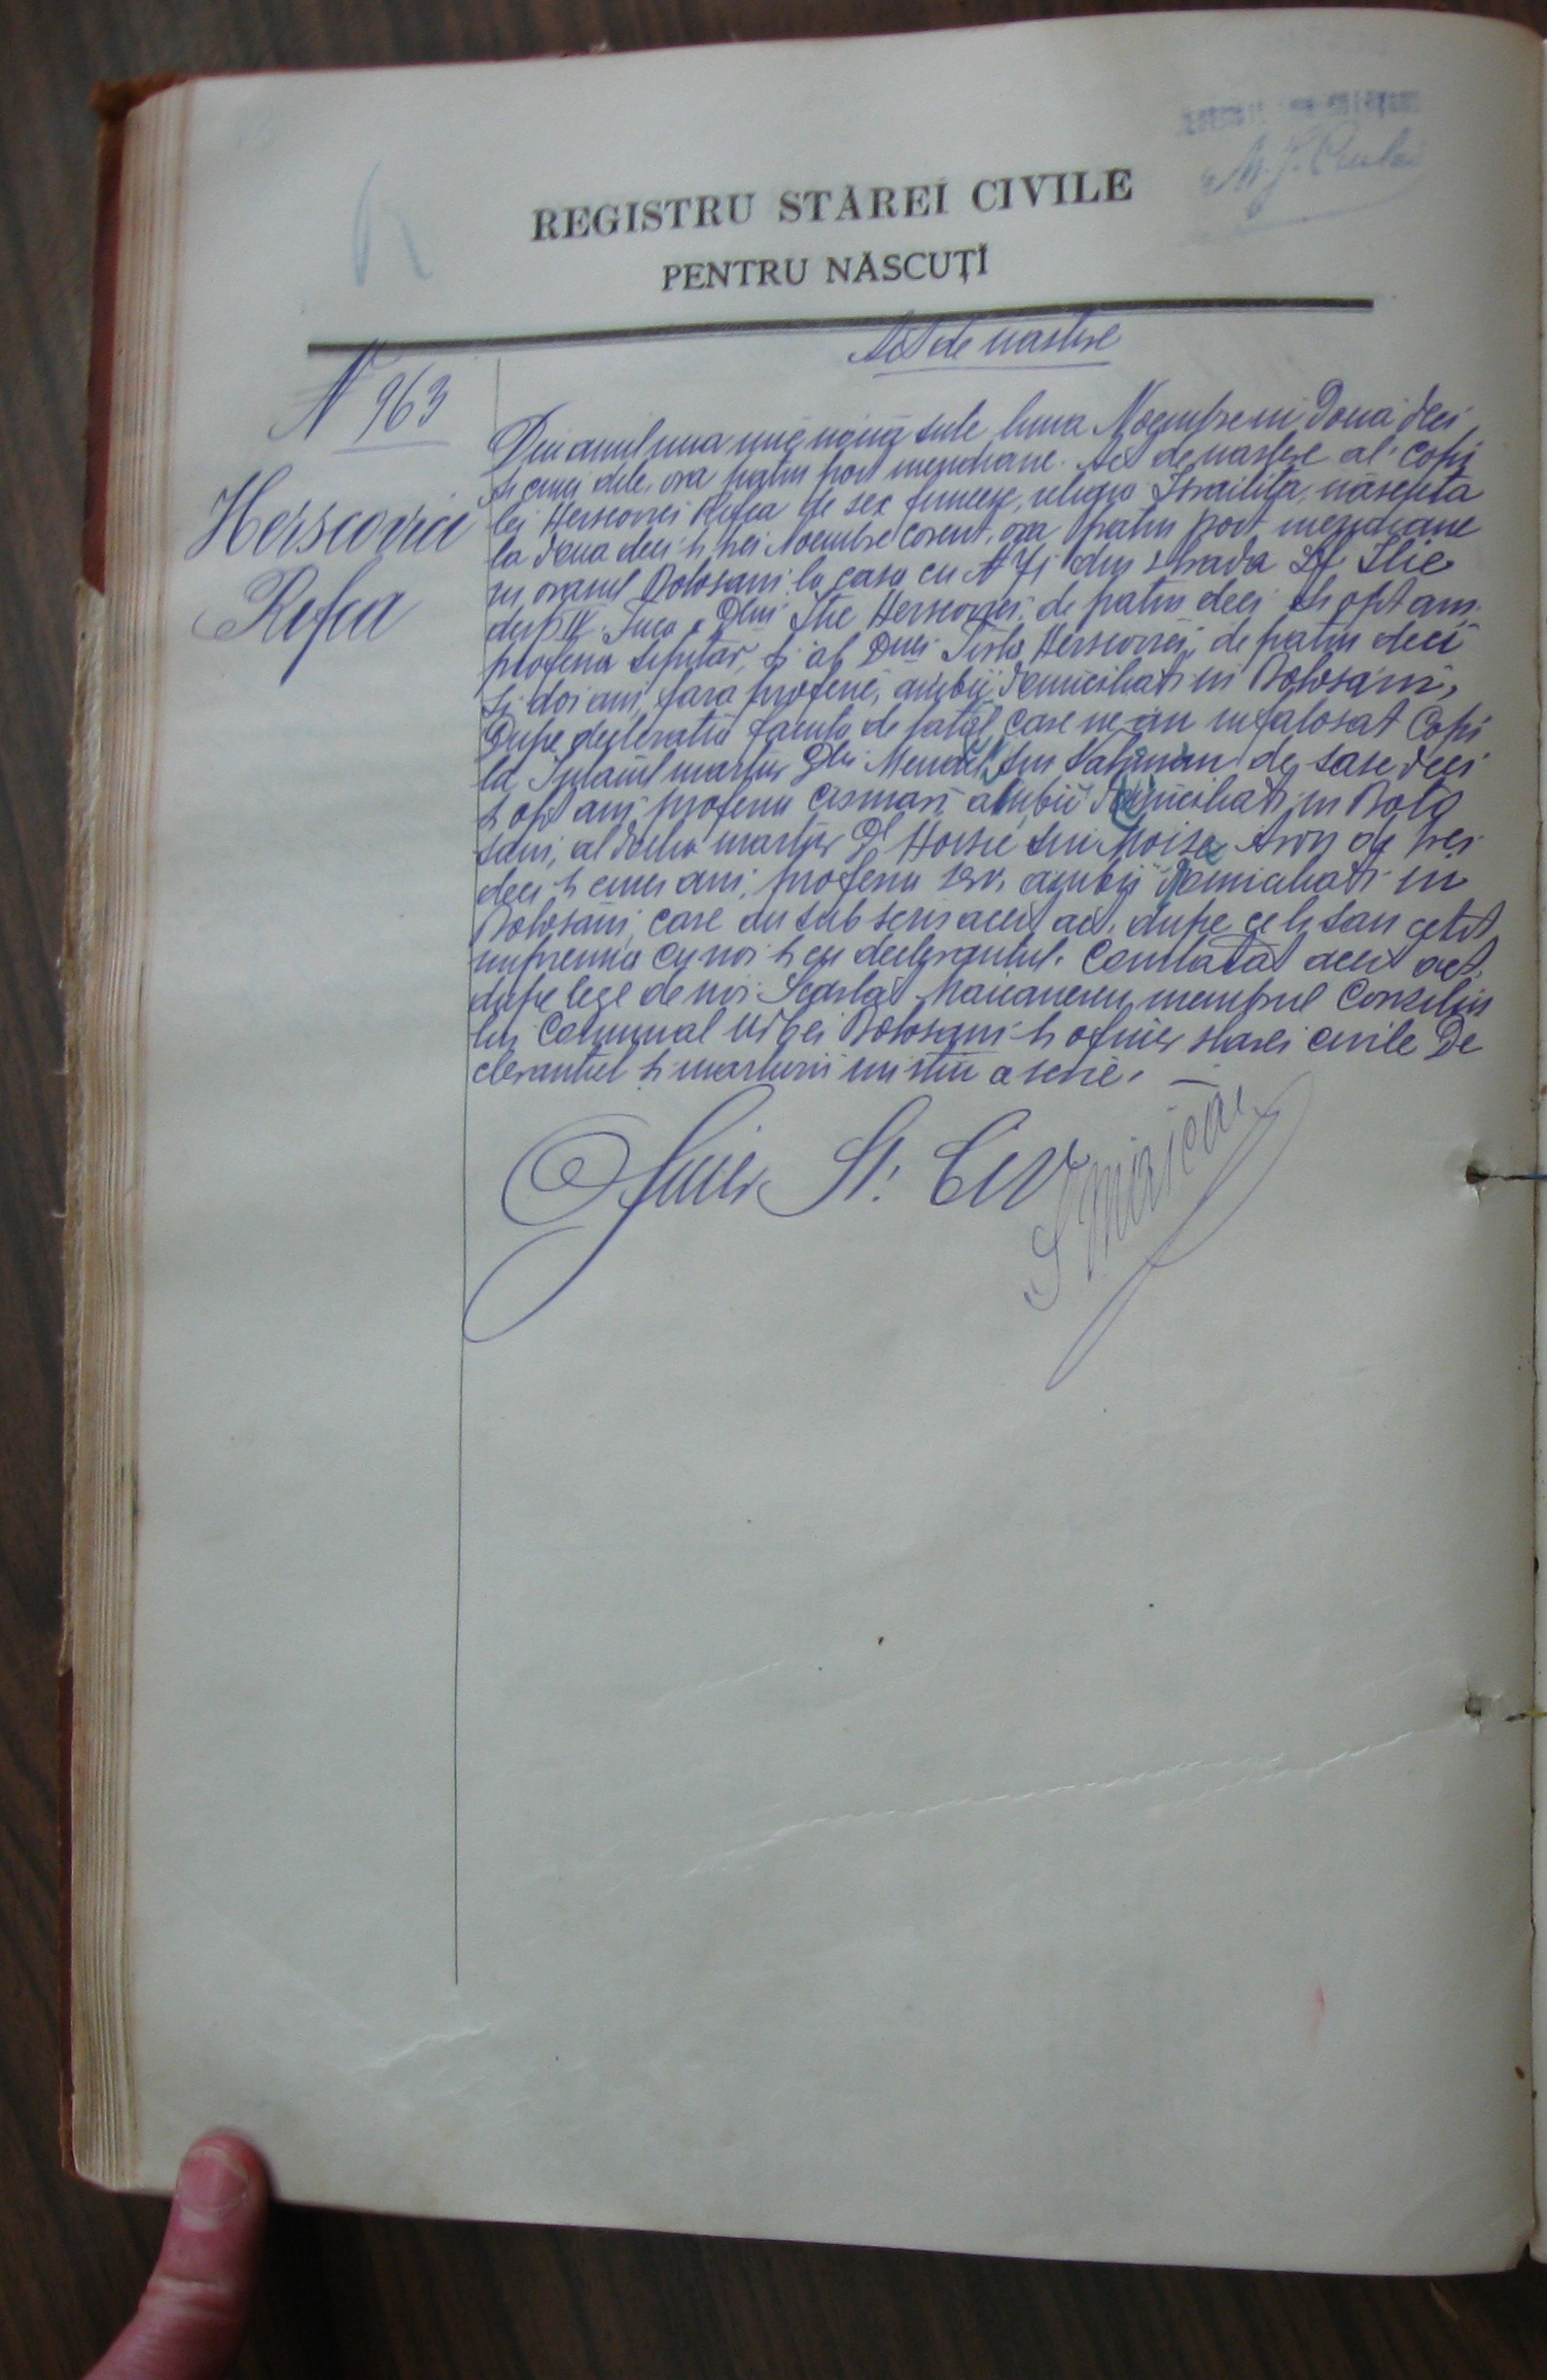 REGISTRU STĂREĬ CIVILE
PENTRU NĂSCUȚĬ
Act de nastere
N 963
Herscovici
Rifca
Din anul una mie nouă sute luna Noembre in Doua deci
si cinci dile, ora patru post meridiane. Act de nastere al copi
lei Herscovici Rifca de sex femeesc, religia Israilita, născută
la doua deci si trei Noembre corent, ora patru post meridiane
in orasul Botosani la casa cu N din strada Sf Ilie
desp IV. fiica Dlui Itic Herscovici, de patru deci si opt ani,
profesia si al Dnei Herscovici, de patru deci
si doi ani, fara profesie, ambii domiciliati in Botosani,
Dupe declaratia facuta de tatăl, care ne-au infatosat Copi
la Intaiul martur Dlu Mendel sin Nahman de sase deci
si opt ani profesia cismari, ambii Domiciliati in Boto
sani, al doilea martur Dl sin Moise Aron de trei
deci si cinci ani, profesia serv, ambii Domiciliati in
Botosani, care au subscris acest act, dupe ce li sau cetit
impreuna cu noi si cu declarantul. Constatat acest act,
dupe lege de noi Scarlat membrul Consiliu
lui Comunal Urbei Botosani si oficier starei civile De
clarantul si marturii nu stiu a scrie. —
Oficier St. Civ